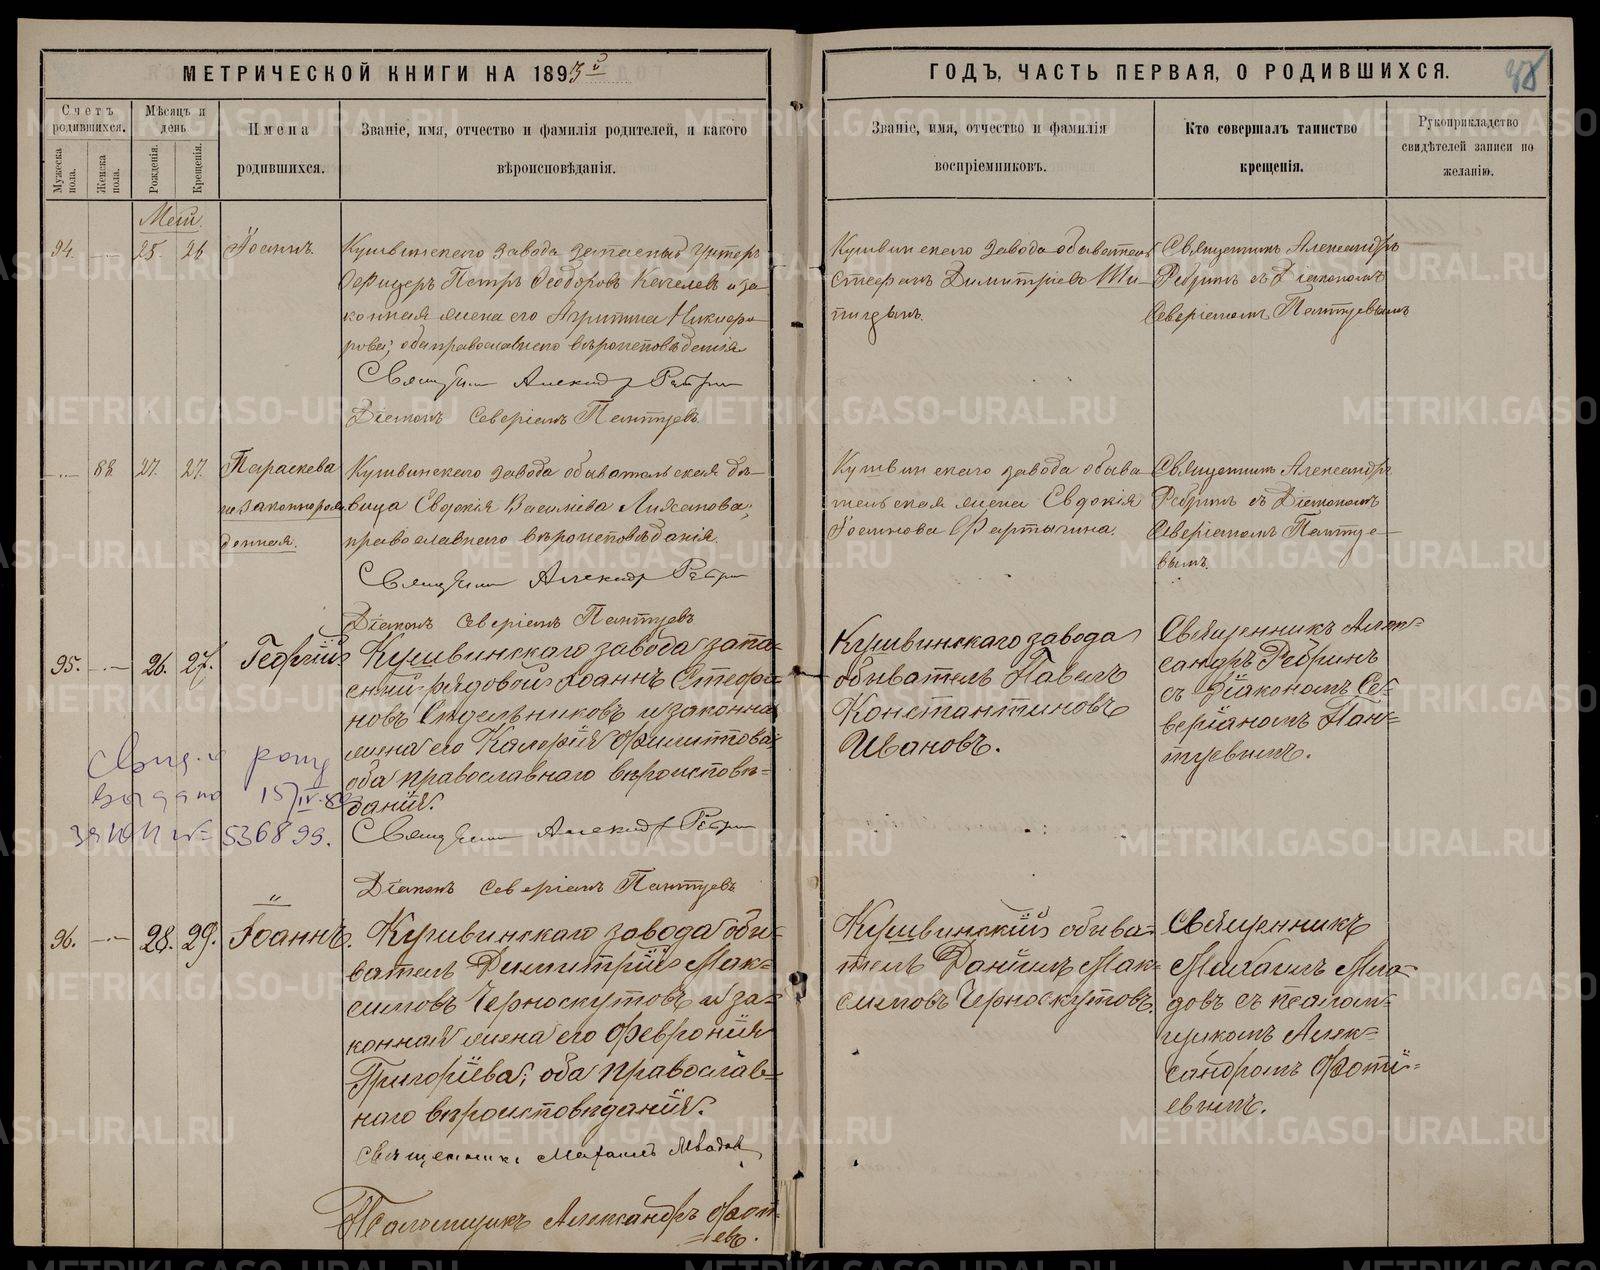 МЕТРИЧЕСКОЙ КНИГИ НА 1893й
ГОДЪ, ЧАСТЬ ПЕРВАЯ, О РОДИВШИХСЯ.
38
Счетъ родившихся.
Мужеска пола.
Женска пола.
Мѣсяцъ и день
Рожденія.
Крещенія.
Имена
родившихся.
Званіе, имя, отчество и фамилія родителей, и какого
вѣроисповѣданія.
Званіе, имя, отчество и фамилія
воспріемниковъ.
Кто совершалъ таинство
крещенія.
Рукоприкладство
свидѣтелей записи по
желанію.
Май.
94. 25. 26 Іоаннъ.
Кушвинскаго завода запасный унтеръ
Офицеръ Петръ Феодоровъ и за-
конная жена его Никифо-
рова; оба православнаго вѣроисповѣданія
Священникъ Александръ Ребринъ
Діаконъ Северіанъ Пантуевъ.
Кушвинскаго завода обыватель
Стефанъ Димитріевъ
Священникъ Александръ
Ребринъ съ Діакономъ
Северіаномъ Пантуевымъ
27. 27. Параскева
незаконнорож
денная.
Кушвинскаго завода обывательская дѣ-
вица Евдокія Васильева
православнаго вѣроисповѣданія.
Священникъ Александръ Ребринъ
Діаконъ Северіанъ Пантуевъ
Кушвинскаго завода обыва-
тельская жена Евдокія
Іоаннова Фартыгина.
Священникъ Александръ
Ребринъ съ Діакономъ
Северіаномъ Пантуе-
вымъ.
95. 26. 27. Георгій
Кушвинскаго завода запа-
сный рядовой Іоаннъ Стефа-
новъ Сѣдельниковъ и законная
жена его Калерія Филиппова
оба православнаго вѣроисповѣ-
данія.
Священникъ Александръ Ребринъ
Діаконъ Северіанъ Пантуевъ
Кушвинскаго завода
обыватель Павелъ
Константиновъ
Ивановъ.
Священникъ Алек-
сандръ Ребринъ
съ Діакономъ Се-
веріаномъ Пан-
туевымъ.
536899.
96. 28. 29. Іоаннъ.
Кушвинскаго завода обы-
ватель Димитрій Мак-
симовъ Черноскутовъ и за-
конная жена его Февронія
Григоріева; оба православ-
наго вѣроисповѣданія.
Священникъ Михаилъ
Псаломщикъ Александръ Фоті-
евъ.
Кушвинскій обыва-
тель Даніилъ Мак-
симовъ Черноскутовъ.
Священникъ
Михаилъ
съ псалом-
щикомъ Алек-
сандромъ Фоті-
евымъ.
METRIKI.GASO-URAL.RU